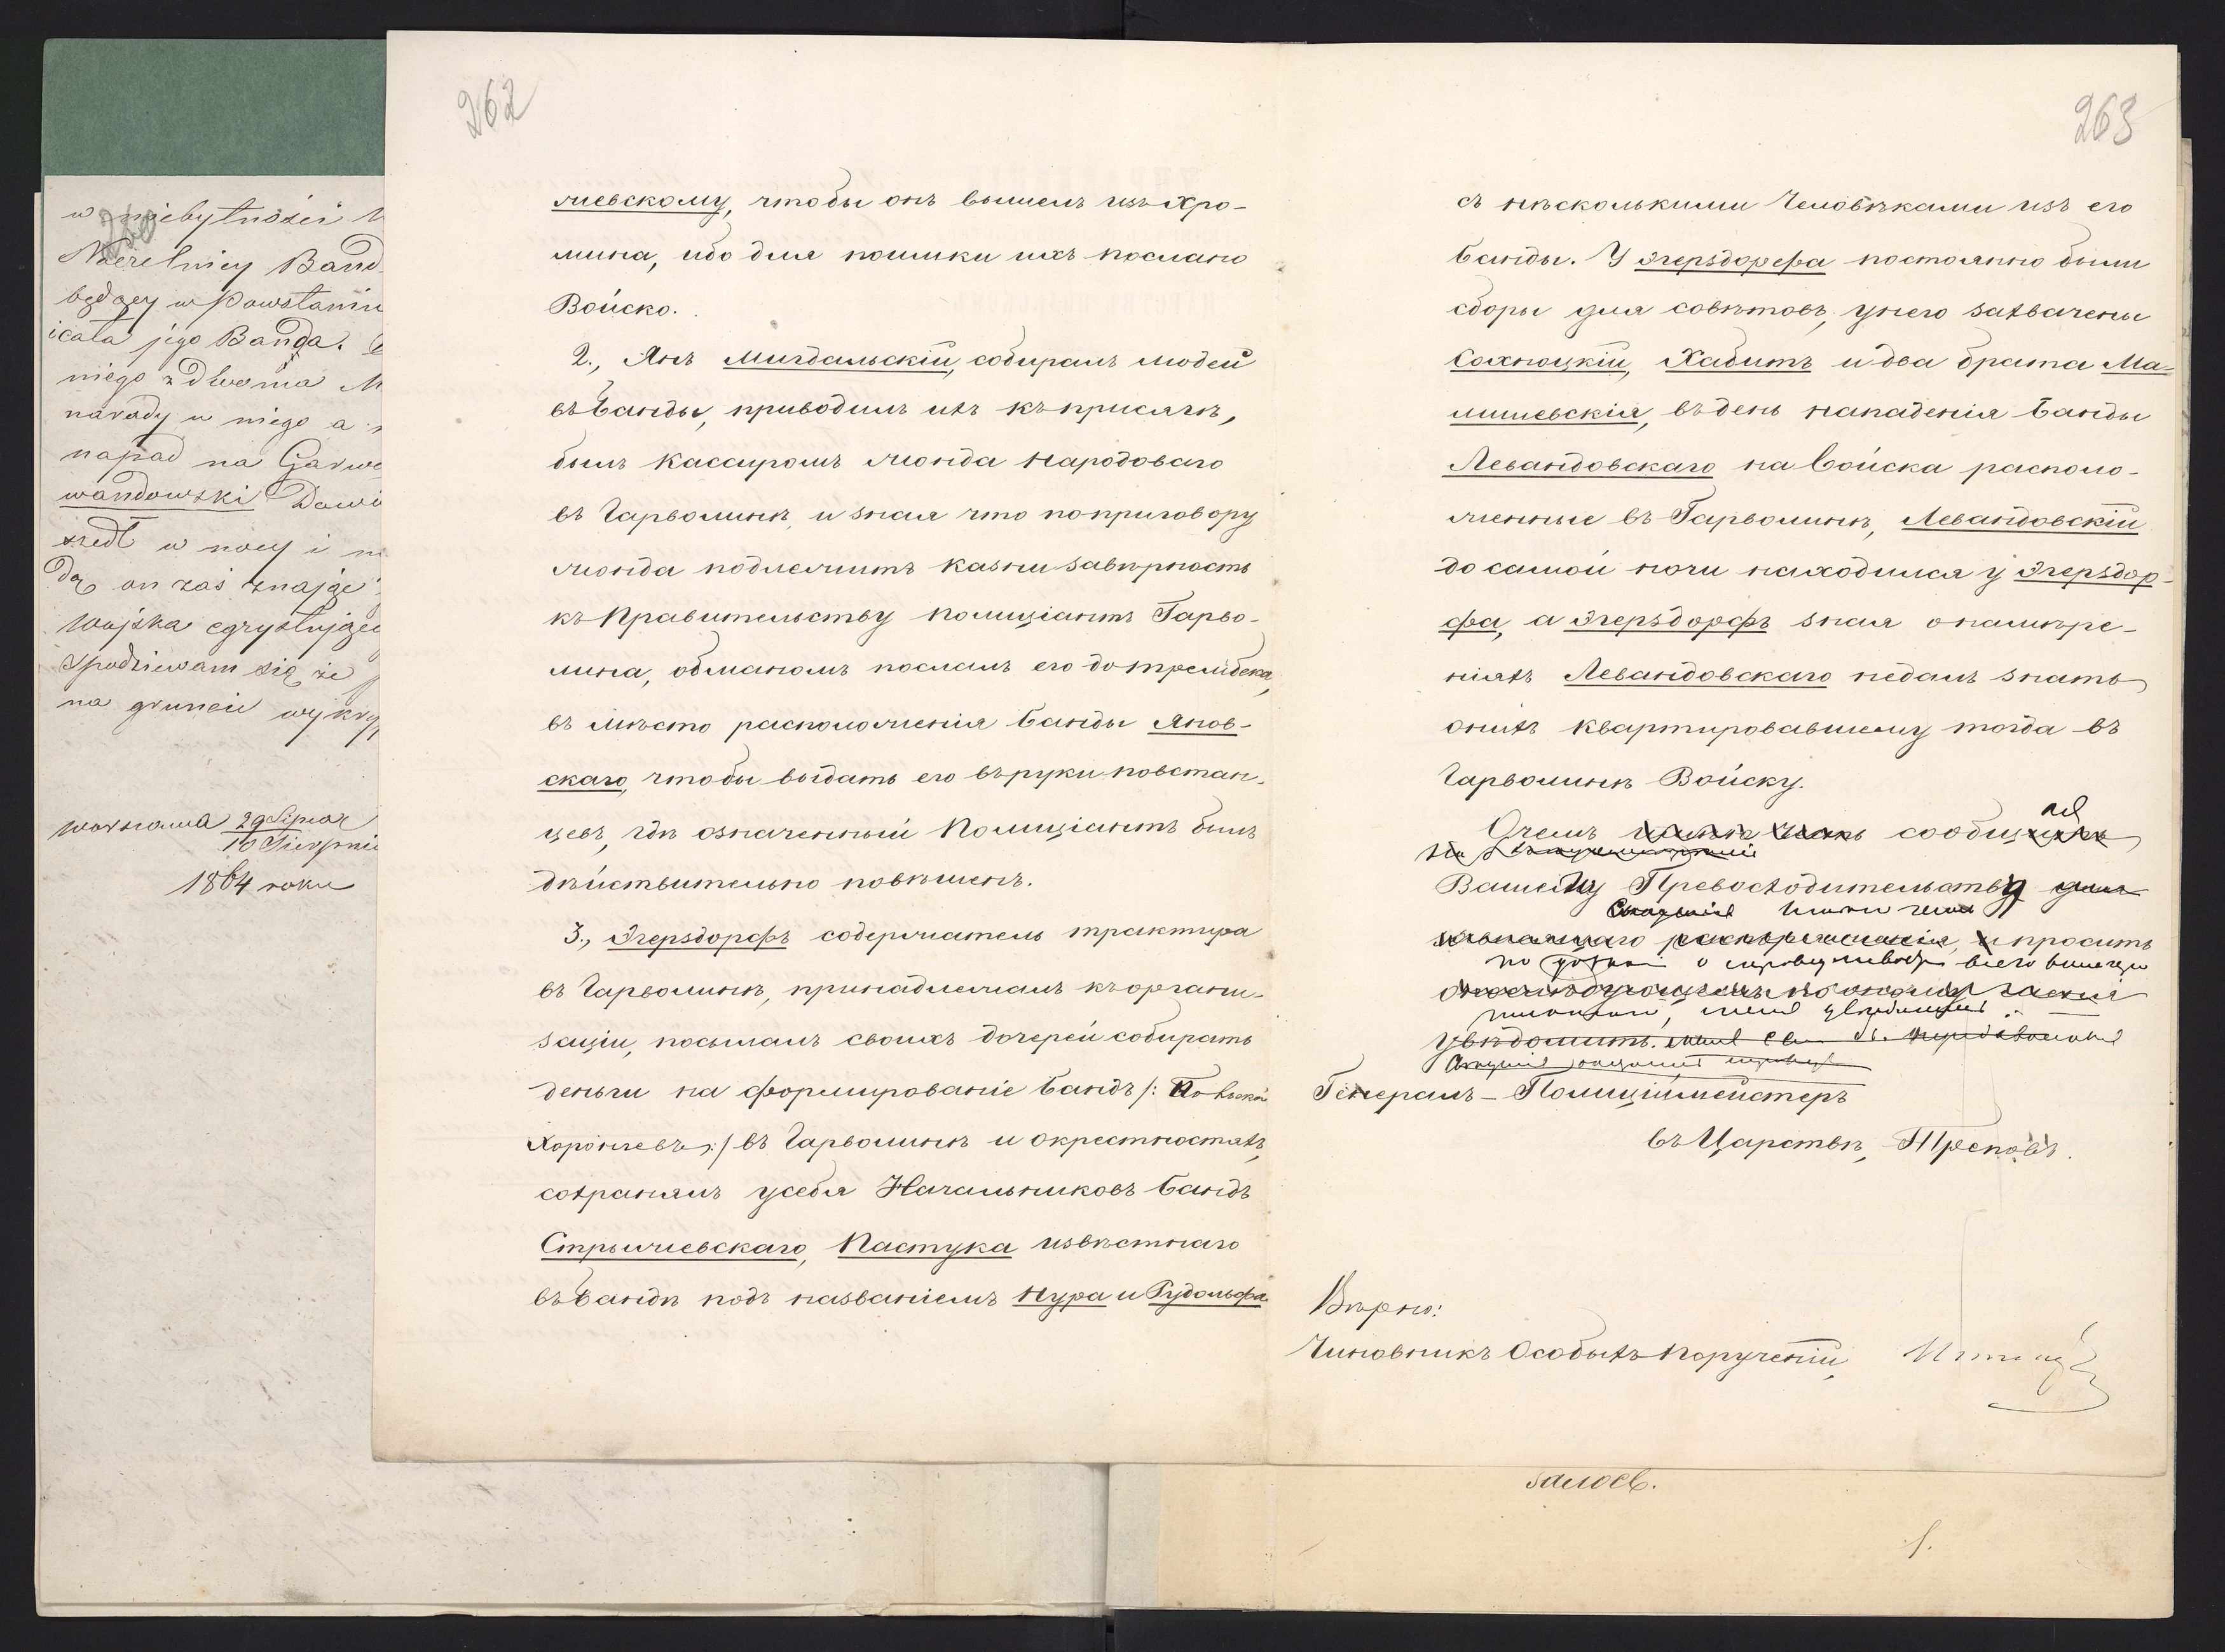 w niebytności
260
Naczelnicy Band
będący w Powstaniu
icała jego Banda.
niego z dwoma M
narady u niego a
napad na Garwo
wandowski Dowó
szedł w nocy i
dą on zaś znając
Wojska egzystując
Spodziewam się że
na gruncie wykry
Warszawa 29 Lipca
10 Sierpnia
1864 roku
262
жевскому, чтобы онъ вышелъ изъ Хро-
мина, ибо для поимки ихъ послано
Войско.
2., Янъ Мигдальскій, собиралъ людей
въ банды, приводилъ ихъ къ присягѣ,
былъ Кассиромъ жонда народоваго
въ Гарволинѣ, и зная что по приговору
жонда подлежитъ казни за вѣрность
къ Правительству полиціантъ Гарво-
лина, обманомъ послалъ его до
въ мѣсто расположенія банды Янов-
скаго, чтобы выдать его въ руки повстан-
цевъ, гдѣ означенный Полиціантъ былъ
дѣйствительно повѣшенъ.
3., Эгерздорфъ содержатель трактира
въ Гарволинѣ, принадлежалъ къ органи-
заціи, посылалъ своихъ дочерей собирать
деньги на формированіе бандъ /:
:/ въ Гарволинѣ и окрестностяхъ,
сохранялъ у себя Начальниковъ бандъ
Стрыжевскаго, Пастука извѣстнаго
въ бандѣ подъ названіемъ Нура и Рудольфа
263
съ нѣсколькими Человѣками изъ его
банды. У Эгерздорфа постоянно были
сборы для совѣтовъ, у него захвачены
Сохноцкій, Хабитъ и два брата Ма-
лишевскія, въ день нападенія банды
Левандовскаго на Войска располо-
женные въ Гарволинѣ, Левандовскій
до самой ночи находился у Эгерздор-
фа, а Эгерздорфъ зная о намѣре-
ніяхъ Левандовскаго не далъ знать
о нихъ квартировавшему тогда въ
Гарволинѣ Войску.
О чемъ имѣю честь сообщить
Вашему Превосходительству для
распоряженія, и просить
по о всего
увѣдомить.
Генералъ-Полиціймейстеръ
въ Царствѣ, Треповъ.
Вѣрно:
Чиновникъ Особыхъ порученій,
залоев.
1.